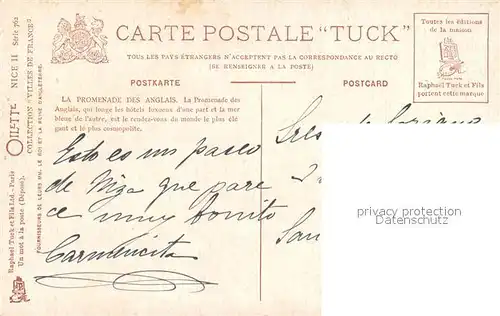 CARTE POSTALE "TUCK"
TOUS LES PAYS ÉTRANGERS N'ACCEPTENT PAS LA CORRESPONDANCE AU RECTO
(SE RENSEIGNER A LA POSTE)
Toutes les éditions
de la maison
Raphael Tuck et Fils
portent cette marque
POSTKARTE
POSTCARD
LA PROMENADE DES ANGLAIS. La Promenade des
Anglais, qui longe les hôtels luxueux d'une part et la mer
bleue de l'autre, est le rendez-vous du monde le plus élé
gant et le plus cosmopolite.
Esto es un paseo
de Niza que pare
ce muy bonito
Carmencita
Sres de Soriano
San
OILETTE NICE II Série 762
COLLECTION "VILLES DE FRANCE"
FOURNISSEURS DE LEURS MM. LE ROI ET LA REINE D'ANGLETERRE.
Raphael Tuck et Fils Ltd.-Paris
Un mot à la poste (Déposé).
privacy protection
Datenschutz